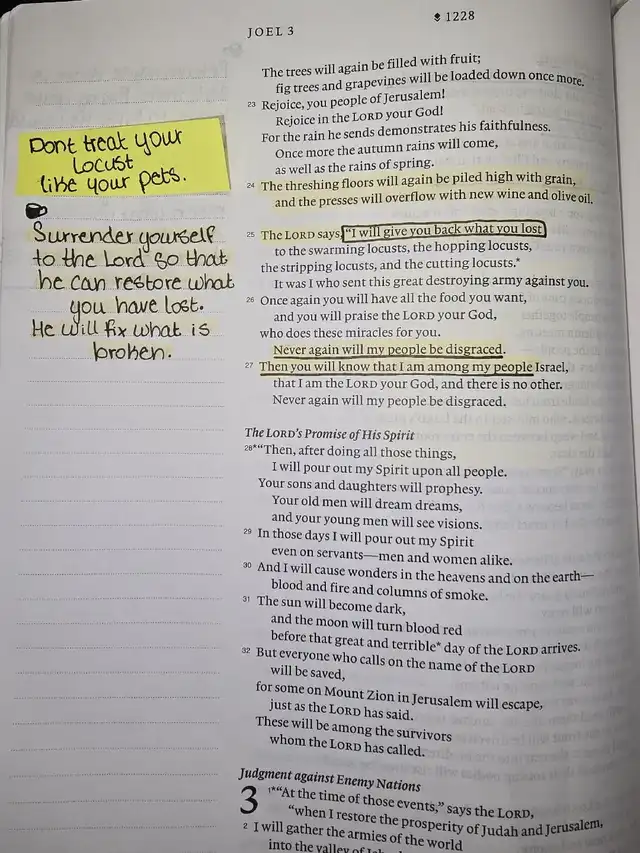 JOEL 3
1228
The trees will again be filled with fruit;
fig trees and grapevines will be loaded down once more.
23 Rejoice, you people of Jerusalem!
Rejoice in the LORD your God!
For the rain he sends demonstrates his faithfulness.
Once more the autumn rains will come,
as well as the rains of spring.
24 The threshing floors will again be piled high with grain,
and the presses will overflow with new wine and olive oil.
25 The LORD says, “I will give you back what you lost
to the swarming locusts, the hopping locusts,
the stripping locusts, and the cutting locusts.*
It was I who sent this great destroying army against you.
26 Once again you will have all the food you want,
and you will praise the LORD your God,
who does these miracles for you.
Never again will my people be disgraced.
27 Then you will know that I am among my people Israel,
that I am the LORD your God, and there is no other.
Never again will my people be disgraced.
The LORD’s Promise of His Spirit
28*“Then, after doing all those things,
I will pour out my Spirit upon all people.
Your sons and daughters will prophesy.
Your old men will dream dreams,
and your young men will see visions.
29 In those days I will pour out my Spirit
even on servants—men and women alike.
30 And I will cause wonders in the heavens and on the earth—
blood and fire and columns of smoke.
31 The sun will become dark,
and the moon will turn blood red
before that great and terrible* day of the LORD arrives.
32 But everyone who calls on the name of the LORD
will be saved,
for some on Mount Zion in Jerusalem will escape,
just as the LORD has said.
These will be among the survivors
whom the LORD has called.
Judgment against Enemy Nations
3 1*“At the time of those events,” says the LORD,
“when I restore the prosperity of Judah and Jerusalem,
2 I will gather the armies of the world
into the valley of
Dont treat your
Locust
like your pets.
Surrender yourself
to the Lord so that
he can restore what
you have lost.
He will fix what is
broken.